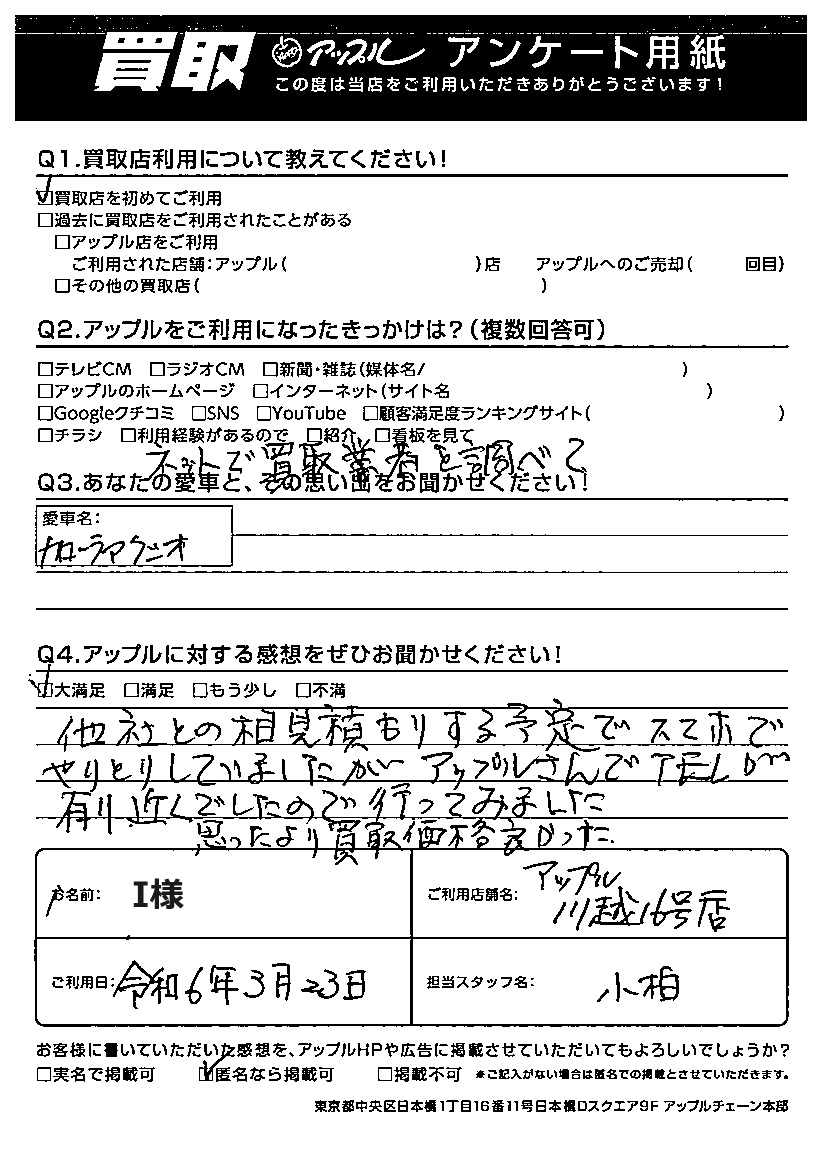 買取 アップル アンケート用紙
この度は当店をご利用いただきありがとうございます！
Q1.買取店利用について教えてください！
☑買取店を初めてご利用
□過去に買取店をご利用されたことがある
□アップル店をご利用
ご利用された店舗：アップル（　）店　アップルへのご売却（　回目）
□その他の買取店（　）
Q2.アップルをご利用になったきっかけは？（複数回答可）
□テレビCM □ラジオCM □新聞・雑誌（媒体名/　）
□アップルのホームページ □インターネット（サイト名　）
□Googleクチコミ □SNS □YouTube □顧客満足度ランキングサイト（　）
□チラシ □利用経験があるので □紹介 □看板を見て
ネットで買取業者を調べて
Q3.あなたの愛車と、その思い出をお聞かせください！
愛車名：
カローラアクシオ
Q4.アップルに対する感想をぜひお聞かせください！
☑大満足 □満足 □もう少し □不満
他社との相見積もりする予定でスマホで
やりとりしていましたが アップルさんでTELが
有り近くでしたので行ってみました
思ったより買取価格良かった.
お名前： I様
ご利用店舗名： アップル
川越16号店
ご利用日： 令和6年3月23日
担当スタッフ名： 小柏
お客様に書いていただいた感想を、アップルHPや広告に掲載させていただいてもよろしいでしょうか？
□実名で掲載可 ☑匿名なら掲載可 □掲載不可 ＊ご記入がない場合は匿名での掲載とさせていただきます。
東京都中央区日本橋1丁目16番11号日本橋Dスクエア9F アップルチェーン本部